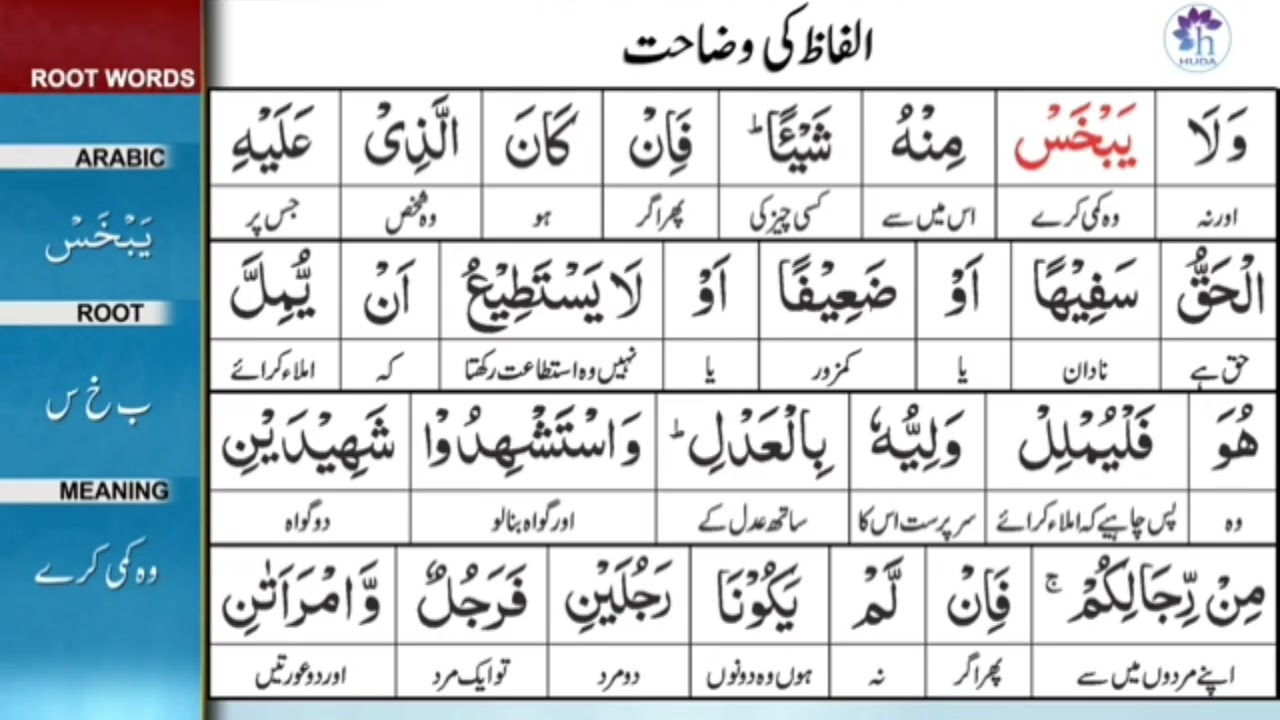 الفاظ کی وضاحت
HUDA
ROOT WORDS
ARABIC
یَبۡخَسۡ
ROOT
ب خ س
MEANING
وہ کمی کرے
وَلَا یَبۡخَسۡ مِنۡهُ شَیۡـًٔاؕ فَاِنۡ کَانَ الَّذِیۡ عَلَیۡهِ
اور نہ وہ کمی کرے اس میں سے کسی چیز کی پھر اگر ہو وہ شخص جس پر
الۡحَقُّ سَفِیۡهًا اَوۡ ضَعِیۡفًا اَوۡ لَا یَسۡتَطِیۡعُ اَنۡ یُّمِلَّ
حق ہے نادان یا کمزور یا نہیں وہ استطاعت رکھتا کہ املاء کرائے
هُوَ فَلۡیُمۡلِلۡ وَلِیُّهٗ بِالۡعَدۡلِؕ وَاسۡتَشۡهِدُوۡا شَهِیۡدَیۡنِ
وہ پس چاہیے کہ املاء کرائے سرپرست اس کا ساتھ عدل کے اور گواہ بنا لو دو گواہ
مِنۡ رِّجَالِکُمۡۚ فَاِنۡ لَّمۡ یَکُوۡنَا رَجُلَیۡنِ فَرَجُلٌ وَّامۡرَاَتٰنِ
اپنے مردوں میں سے پھر اگر نہ ہوں وہ دونوں دو مرد تو ایک مرد اور دو عورتیں